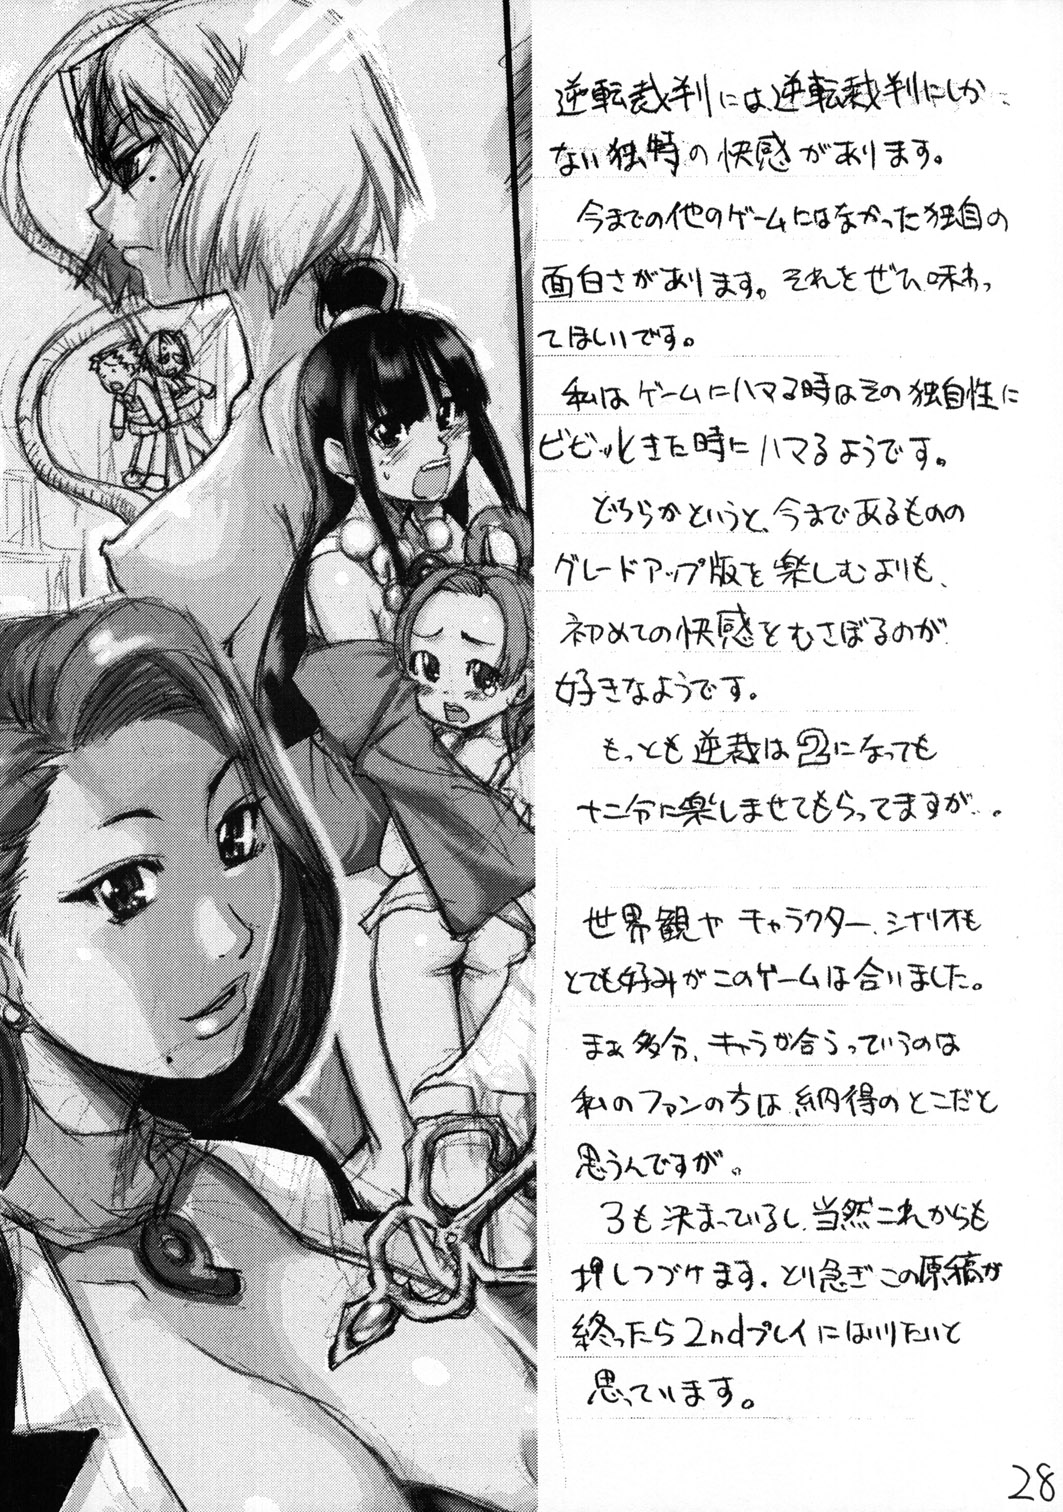 逆転裁判には逆転裁判にしか
ない独特の快感があります。
今までの他のゲームにはなかった独自の
面白さがあります。それをぜひ、味わっ
てほしいです。
私はゲームにハマる時はその独自性に
ビビッときた時にハマるようです。
どちらかというと、今まであるものの
グレードアップ版を楽しむよりも、
初めての快感をむさぼるのが
好きなようです。
もっとも逆裁は2になっても
十二分に楽しませてもらってますが・・。
世界観やキャラクター、シナリオも
とても好みがこのゲームは合いました。
まぁ多分、キャラが合うっていうのは
私のファンの方は納得のとこだと
思うんですが。
3も決まっているし、当然これからも
押しつづけます。とり急ぎこの原稿が
終ったら2ndプレイにはいりたいと
思っています。
28